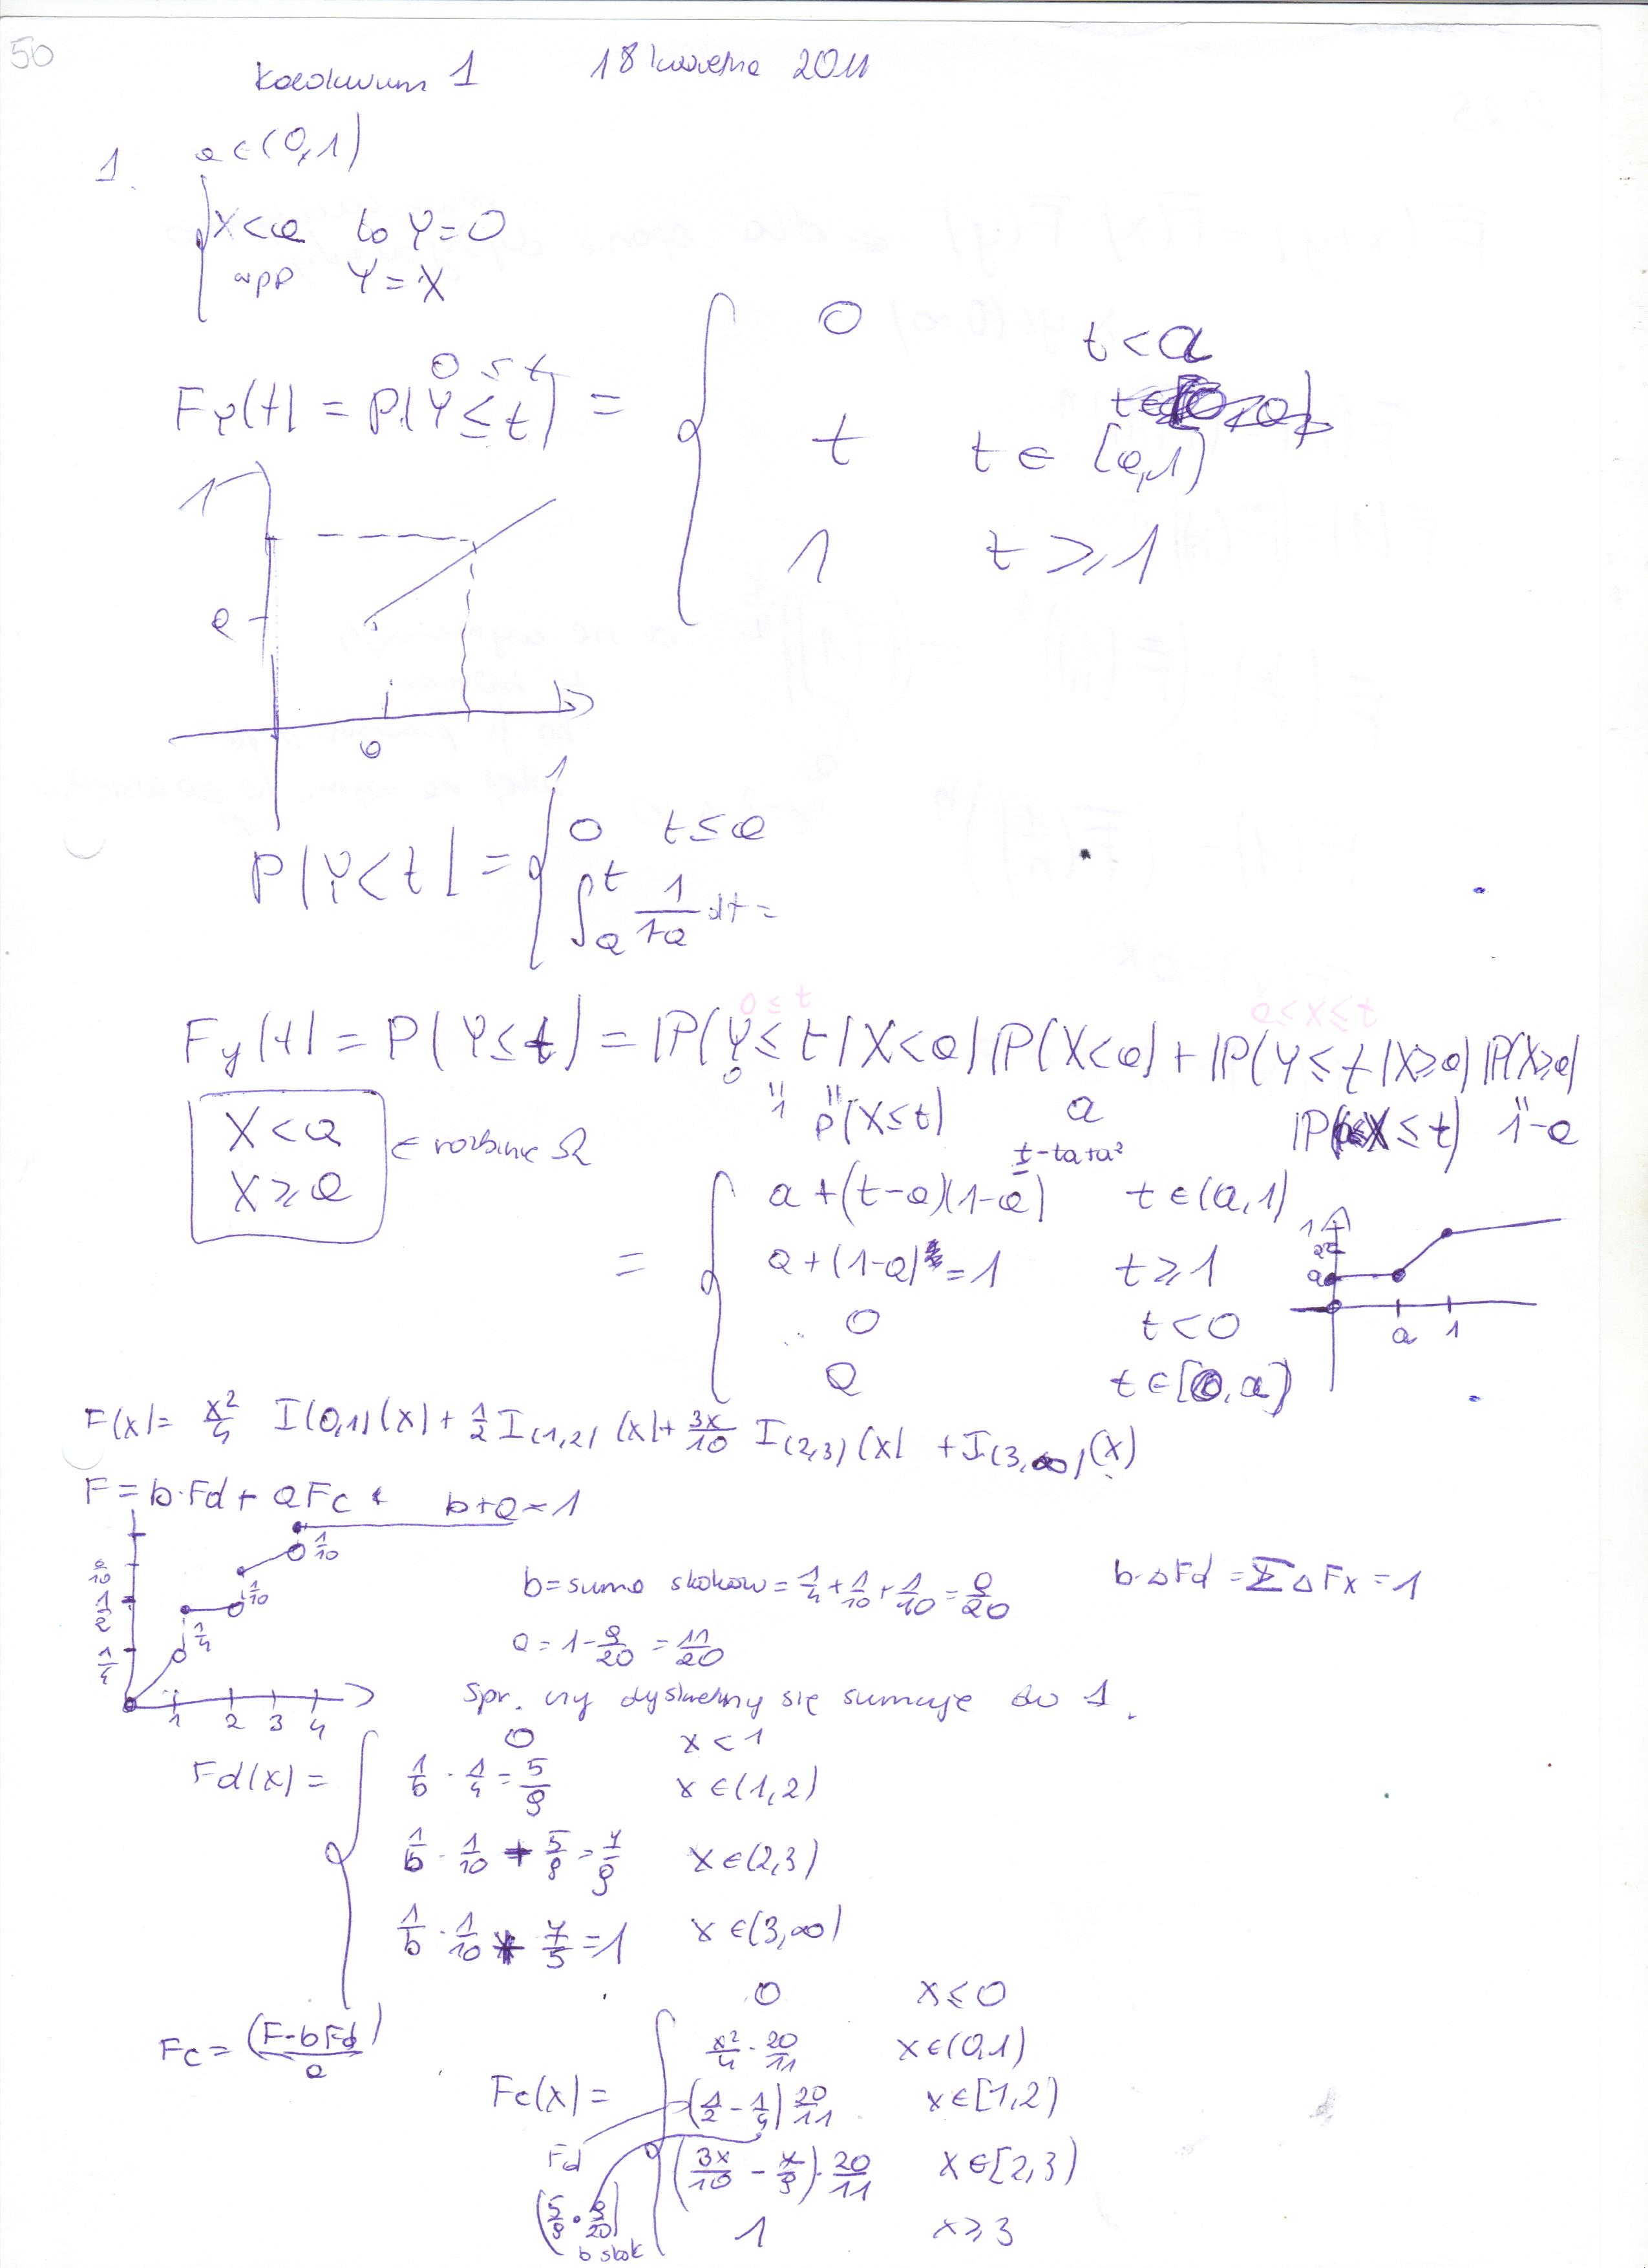 50
Kolokwium 1 18 kwietnia 2011
1. a ∈ (0,1)
X<a to Y=0
wpp Y=X
0 ≤ t
F_Y(t) = P(Y ≤ t) = { 0 t<a
t t ∈ [a,1)
1 t ≥ 1
1
a
a
1
P(Y<t) = { 0 t ≤ a
∫_a^t 1/(1-a) dt =
0 ≤ t t ≤ X ≤ a
F_Y(t) = P(Y ≤ t) = P(Y ≤ t | X<a) P(X<a) + P(Y ≤ t | X ≥ a) P(X ≥ a)
0 " 1 " P(X ≤ t) a P( X ≤ t) " 1-a
X<a
X ≥ a
∈ rozbicie Ω
t-ta+a²
= { a+(t-a)(1-a) t ∈ (a,1)
a+(1-a) = 1 t ≥ 1
0 t<0
a t ∈ [0,a)
1
a
a 1
F(x) = x²/4 I(0,1)(x) + 1/2 I(1,2)(x) + 3x/10 I(2,3)(x) + I(3,∞)(x)
F = b·Fd + aFc b+a=1
9/10
1/2
1/4
1/4 1/10 1/10
1 2 3 4
b = suma skoków = 1/4 + 1/10 + 1/10 = 9/20 b·ΔFd = ΣΔFx = 1
a = 1 - 9/20 = 11/20
Spr. czy dyskretny się sumuje do 1.
Fd(x) = { 0 x<1
1/b · 1/4 = 5/9 x ∈ (1,2)
1/b · 1/10 + 5/9 = 7/9 x ∈ (2,3)
1/b · 1/10 + 7/9 = 1 x ∈ (3,∞)
Fc = (F-bFd)/a
Fc(x) = { 0 x ≤ 0
x²/4 · 20/11 x ∈ (0,1)
(1/2 - 1/4) 20/11 x ∈ [1,2)
Fd
(3x/10 - x/9) · 20/11 x ∈ [2,3)
(5/9 · 9/20)
b skok
1 x ≥ 3